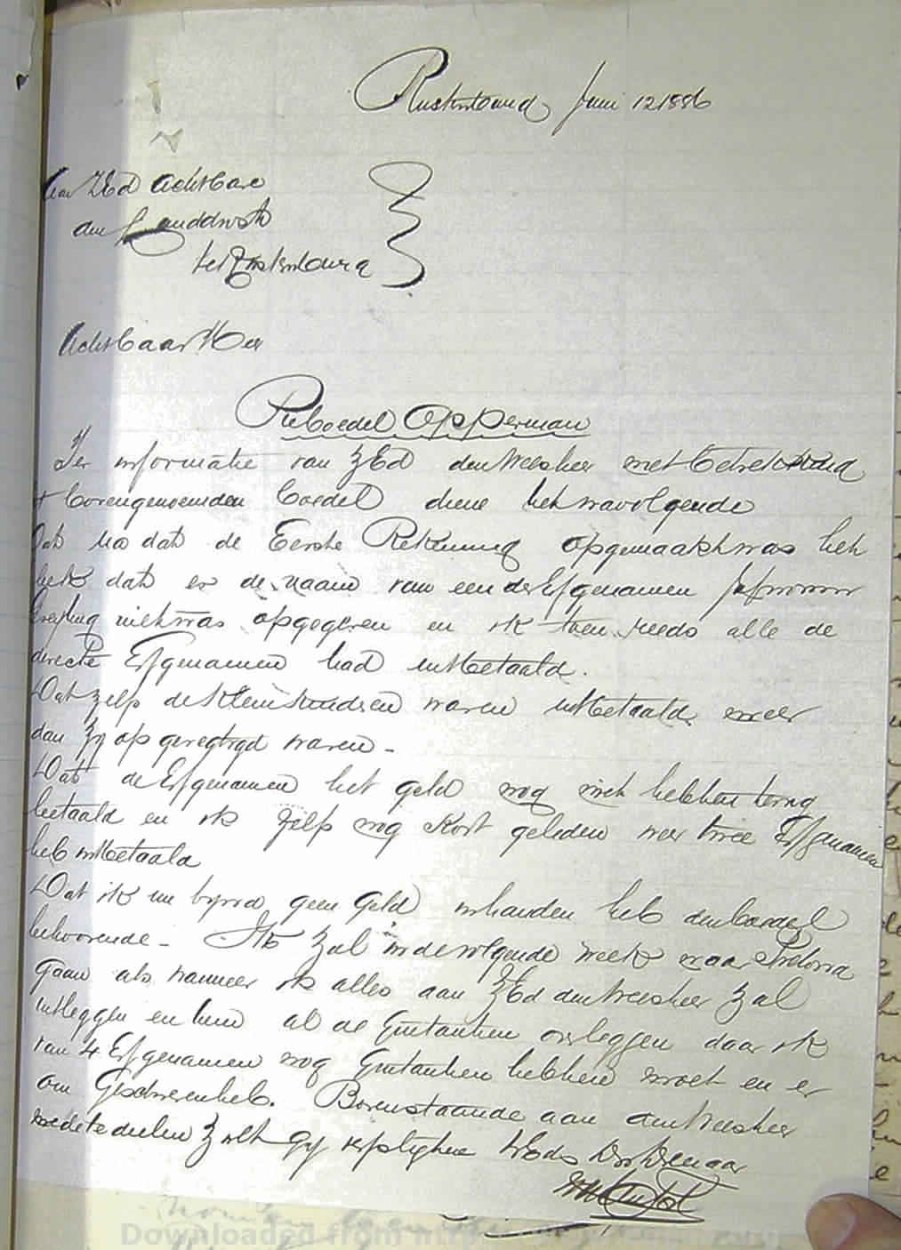 Rustenburg Juni 12 1886
Aan ZEd Achtbare
den Landdrost
te Rustenburg
Achtbaar Heer
Re Boedel Opperman
Ter informatie van ZEd den Weesheer met betrekking
t bovengenoemden boedel diene het navolgende
Dat na dat de Eerste Rekening opgemaakt was het
dat er de naam van een der Erfgenamen
niet was opgegeven en ik toen reeds alle de
directe Erfgenamen had uitbetaald.
Dat zelfs de Kleinkinderen waren uitbetaald meer
dan zy op geregtigd waren -
Dat de Erfgenamen het geld nog niet hebben terug
betaald en ik zelf nog kort geleden weer twee Erfgenamen
heb uitbetaald
Dat ik nu geen geld inhanden heb den boedel
behoorende - Ik zal in de volgende week naar Pretoria
gaan als wanneer ik alles aan ZEd den Weesheer zal
uitleggen en hem al de Quitantien overleggen daar ik
van 4 Erfgenamen nog Quitantien hebben moet en er
om Geschreven heb. Bovenstaande aan den Weesheer
mede te deelen zult gy verpligten UEds Dw Dienaar
Downloaded from